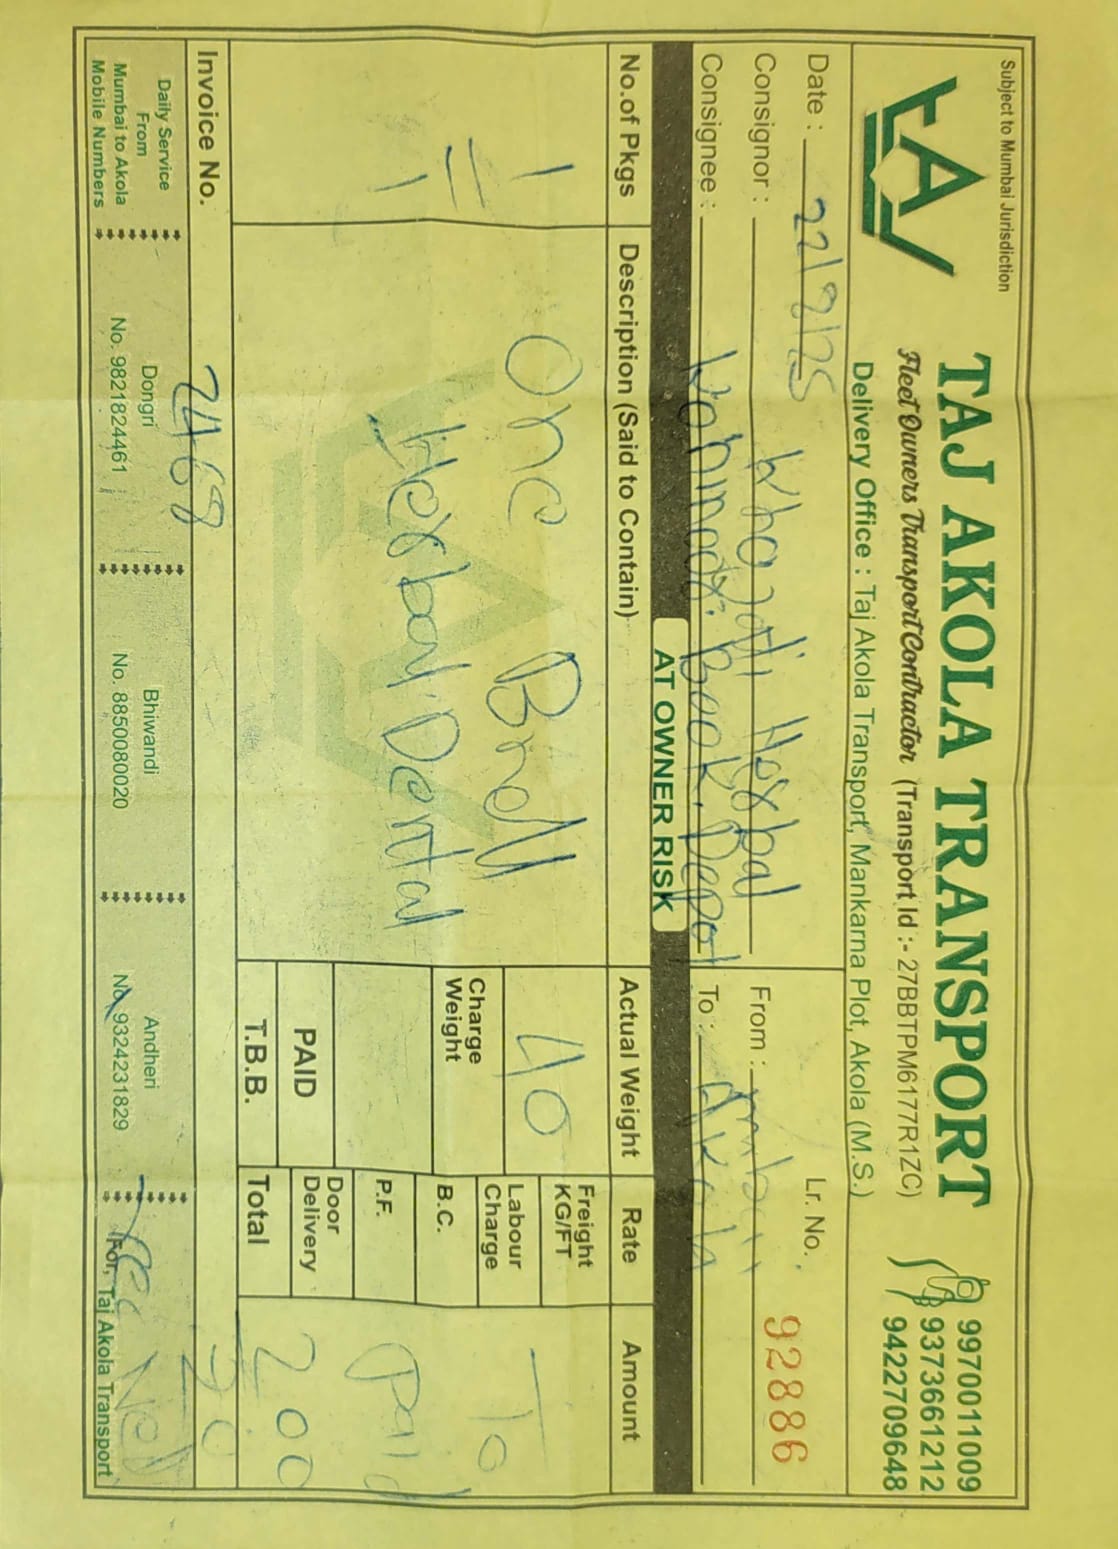 Subject to Mumbai Jurisdiction
TAJ AKOLA TRANSPORT
Fleet Owners Transport Contractor (Transport Id :- 27BBTPM6177R1ZC)
9970011009
9373661212
9422709648
Delivery Office : Taj Akola Transport, Mankarna Plot, Akola (M.S.)
Date : 22/8/25 Lr. No. 92886
Consignor : Herbal From :
Consignee : Book Depot To : Akola
AT OWNER RISK
No.of Pkgs Description (Said to Contain) Actual Weight Rate Amount
1 One 40 Freight KG/FT To
= Charge Weight Labour Charge
1 Herbal Dental B.C. Paid
P.F.
PAID Door Delivery
T.B.B. Total 200
Invoice No. 2468
Daily Service From Mumbai to Akola Mobile Numbers
Dongri No. 9821824461
Bhiwandi No. 8850080020
Andheri No. 9324231829
For, Taj Akola Transport